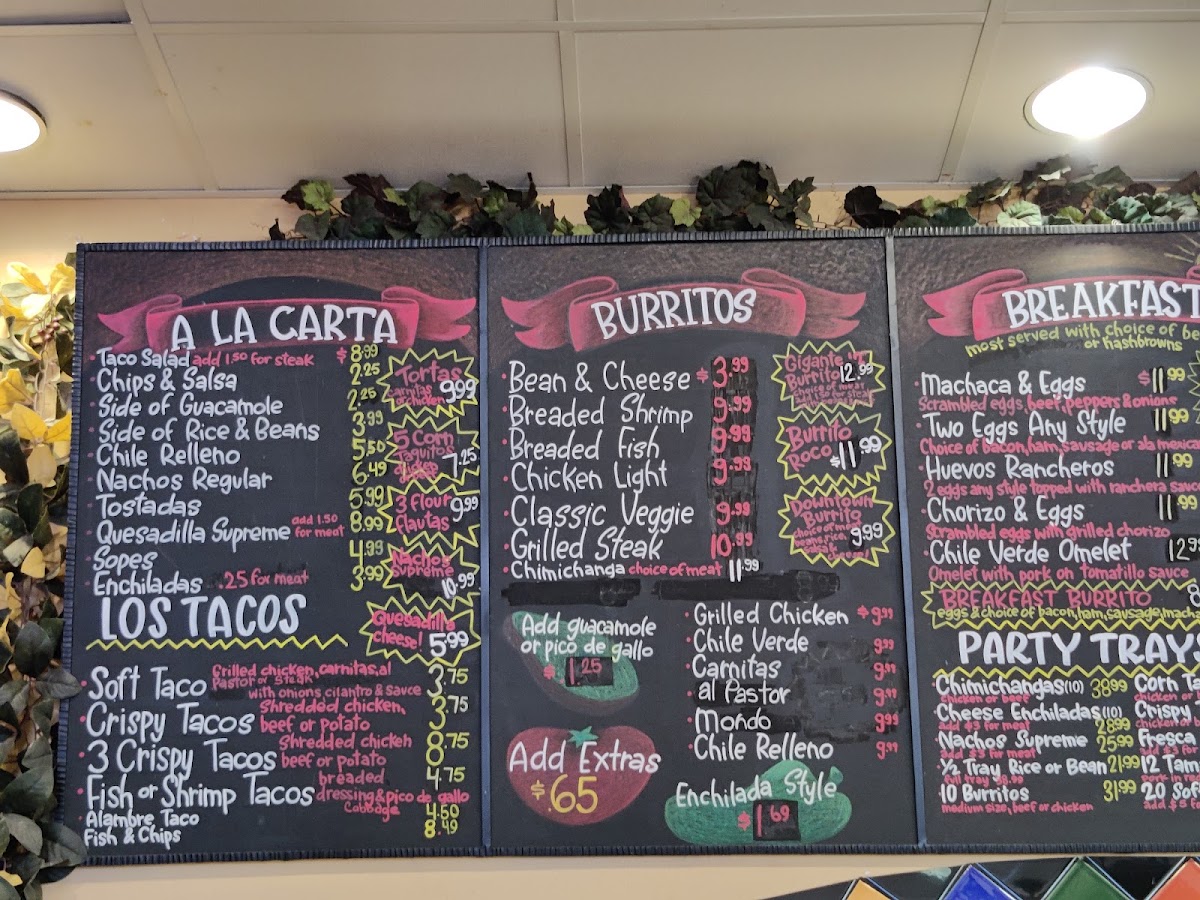 A LA CARTA
Taco Salad add 1.50 for steak $8.99
Chips & Salsa 2.25
Side of Guacamole 2.25
Side of Rice & Beans 3.99
Chile Relleno 5.50
Nachos Regular 6.49
Tostadas 5.99
Quesadilla Supreme add 1.50 for meat 8.99
Sopes 4.99
Enchiladas .25 for meat 3.99
Tortas
carnitas
or chicken 9.99
5 Corn
Taquitos 7.25
3 flour
flautas 9.99
Nachos
Supreme
10.99
Quesadilla
cheese! 5.99
LOS TACOS
Soft Taco Grilled chicken, carnitas, al
Pastor or steak
with onions, cilantro & sauce 3.75
Crispy Tacos Shredded chicken,
beef or potato 3.75
3 Crispy Tacos Shredded chicken
beef or potato 8.75
Fish or Shrimp Tacos breaded
dressing & pico de gallo
Cabbage 4.75
Alambre Taco 4.50
Fish & Chips 8.49
BURRITOS
Bean & Cheese $3.99
Breaded Shrimp 9.99
Breaded Fish 9.99
Chicken Light 9.99
Classic Veggie 9.99
Grilled Steak 10.99
Chimichanga choice of meat 11.99
Gigante "T"
Burrito 12.99
choice of meat
add 1.50 for steak
Burrito
Roco $11.99
Downtown
Burrito
choice of meat
beans, rice,
salsa & 9.99
Add guacamole
or pico de gallo
$1.25
Add Extras
$.65
Grilled Chicken $9.99
Chile Verde 9.99
Carnitas 9.99
al Pastor 9.99
Mondo 9.99
Chile Relleno 9.99
Enchilada Style
$1.69
BREAKFAST
most served with choice of
or hashbrowns
Machaca & Eggs $11.99
Scrambled eggs, beef, peppers & onions
Two Eggs Any Style 11.99
Choice of bacon, ham, sausage or a la
Huevos Rancheros 11.99
2 eggs any style topped with ranchera sauce
Chorizo & Eggs 11.99
Scrambled eggs with grilled chorizo
Chile Verde Omelet 12.99
Omelet with pork on tomatillo sauce
BREAKFAST BURRITO 8
eggs & choice of bacon, ham, sausage,
PARTY TRAYS
Chimichangas (10) 38.99
chicken or beef
Cheese Enchiladas (10) 28.99
add $3 for meat
Nachos Supreme 25.99
add $3 for meat
½ Tray Rice or Bean 21.99
full tray 38.99
10 Burritos 31.99
medium size, beef or chicken
Corn
chicken or
Crispy
chicken or
Fresca
add $3 for
12
Pork in
20
add $5